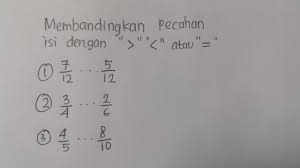 Membandingkan Pecahan
isi dengan ">" "<" atau "="
① 7/12 ... 5/12
② 3/4 ... 2/6
③ 4/5 ... 8/10